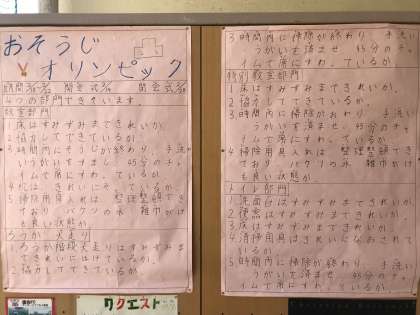 おそうじ
オリンピック
4つの部門できそいます。
教室部門
1 床はすみずみまできれいか。
2 協力してできているか。
3 時間内にそうじが終わり、手洗い
うがいをすまし、45分のチャ
イムで席にすわっているか。
4 机は、きれいにそろっているか。
5 掃除用具入れは、整理整頓でき
ており、バケツの水、雑巾がけ
も良い状態か。
1 ろうか、階段、犬走りはすみずみま
できれいにはけているか。
2 協力してできているか。
3 時間内に掃除が終わり、手洗い
うがいを済ませ、45分のチャ
イムで席にすわっているか。
特別教室部門
1 床はすみずみまできれいか。
2 協力してできているか。
3 時間内に掃除がおわり、手洗い
うがいを済ませ、45分のチャ
イムで席にすわっているか。
4 掃除用具入れは、整理整頓でき
ており、バケツの水、雑巾がけ
も良い状態か。
トイレ部門
1 洗面台はすみずみまできれいか。
2 便器はすみずみまできれいか。
3 床はすみずみまできれいか。
4 清掃用具はきれいになおされて
いるか。
5 時間内に掃除が終わり、手洗い
うがいを済ませ、45分のチャ
イムで席にすわっているか。
リクエスト